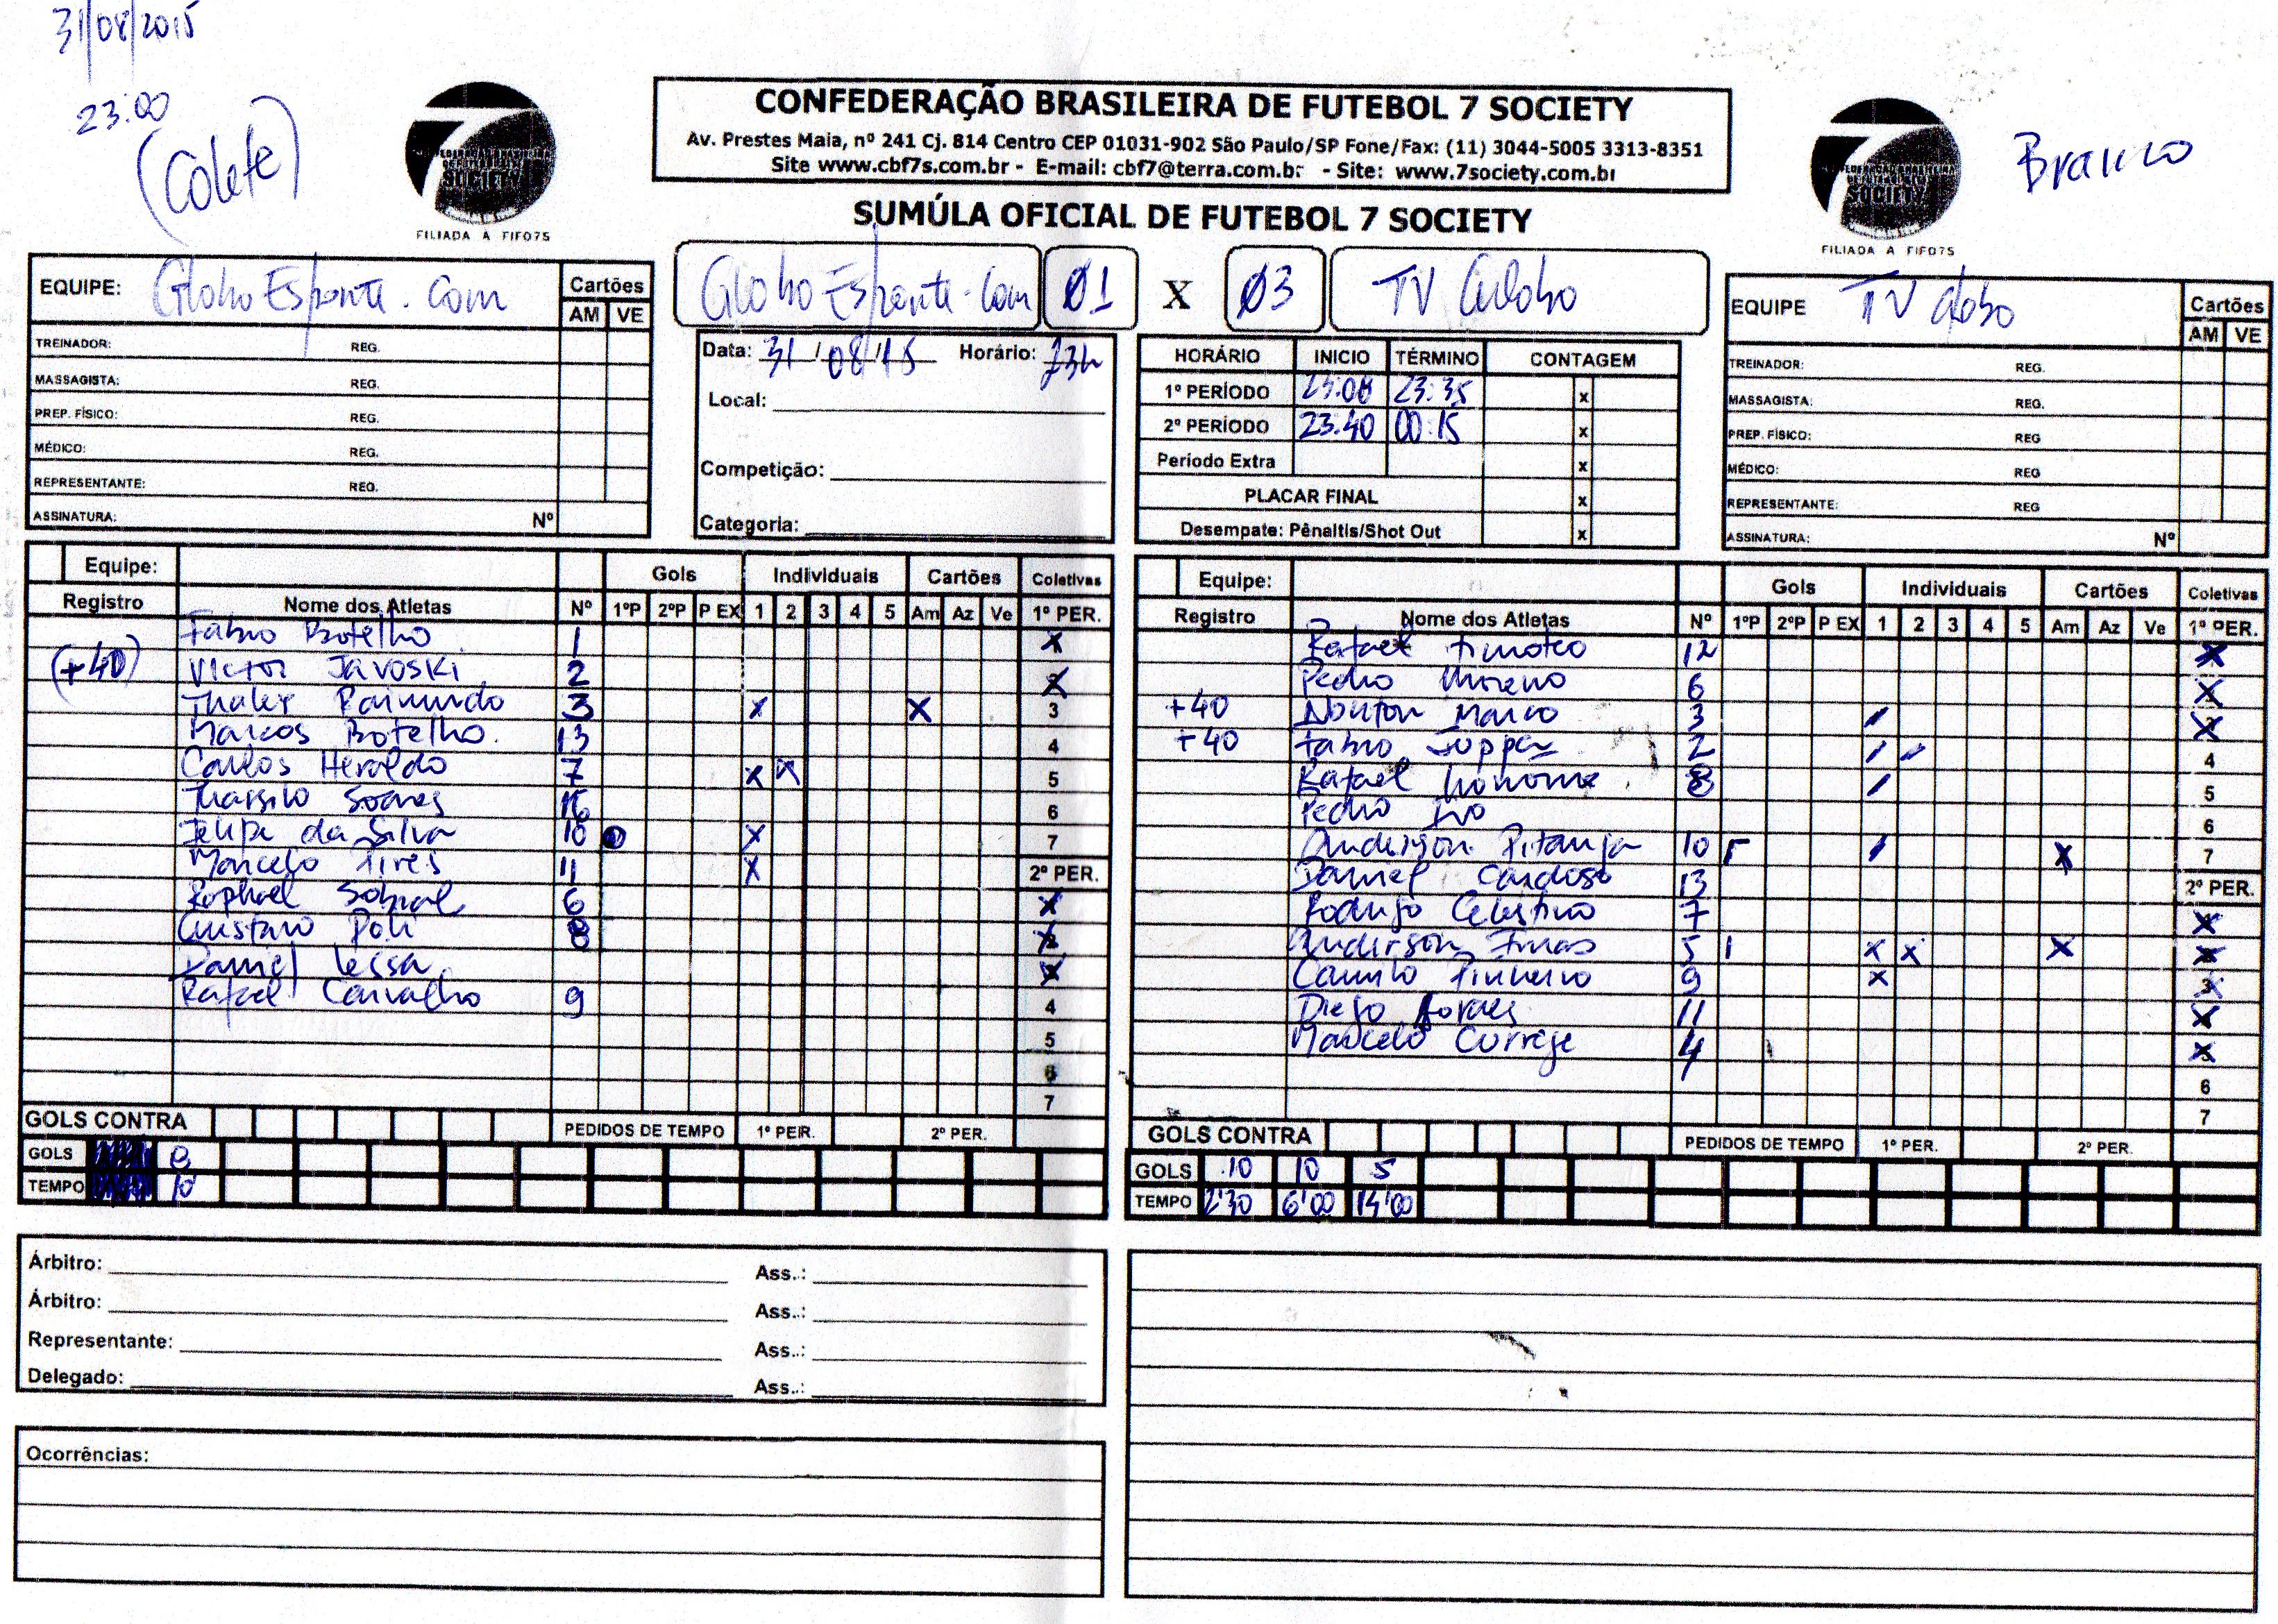 31/08/2015
23:00
(Colete)
CONFEDERAÇÃO BRASILEIRA DE FUTEBOL 7 SOCIETY
Av. Prestes Maia, nº 241 Cj. 814 Centro CEP 01031-902 São Paulo/SP Fone/Fax: (11) 3044-5005 3313-8351
Site www.cbf7s.com.br - E-mail: cbf7@terra.com.br - Site: www.7society.com.br
Branco
SOCIETY
FILIADA A FIFO7S
SOCIETY
FILIADA A FIFO7S
SUMÚLA OFICIAL DE FUTEBOL 7 SOCIETY
GloboEsporte.com 01 X 03 TV Globo
EQUIPE: GloboEsporte.com Cartões
AM VE
TREINADOR: REG.
MASSAGISTA: REG.
PREP. FÍSICO: REG.
MÉDICO: REG.
REPRESENTANTE: REG.
ASSINATURA: Nº
Data: 31/08/15 Horário: 23h
Local:
Competição:
Categoria:
HORÁRIO INICIO TÉRMINO CONTAGEM
1º PERÍODO 23:08 23:35 x
2º PERÍODO 23:40 00:15 x
Período Extra x
PLACAR FINAL x
Desempate: Pênaltis/Shot Out x
EQUIPE TV Globo Cartões
AM VE
TREINADOR: REG.
MASSAGISTA: REG.
PREP. FÍSICO: REG
MÉDICO: REG
REPRESENTANTE: REG
ASSINATURA: Nº
Equipe: Gols Individuais Cartões Coletivas
Registro Nome dos Atletas Nº 1ºP 2ºP P EX 1 2 3 4 5 Am Az Ve 1º PER.
Fabio Botelho 1 X
(+40) Victor Javoski 2 X
Thales Raimundo 3 X X 3
Marcos Botelho 13 4
Carlos Heraldo 7 X X 5
Tharsilo Soares 16 6
Felipe da Silva 10 X 7
Marcelo Pires 11 X 2º PER.
Raphael Sobral 6 X
Gustavo Poli 8 X
Daniel Lessa X
Rafael Carvalho 9 4
5
6
7
GOLS CONTRA PEDIDOS DE TEMPO 1º PER. 2º PER.
GOLS
TEMPO 10
Equipe: Gols Individuais Cartões Coletivas
Registro Nome dos Atletas Nº 1ºP 2ºP P EX 1 2 3 4 5 Am Az Ve 1º PER.
Rafael Timoteo 12 X
Pedro Moreno 6 X
+40 Marco 3 / X
+40 Fabio Juppa 2 / / 4
Rafael 8 / 5
Pedro Ivo 6
Anderson Pitanga 10 / X 7
Daniel Cardoso 13 2º PER.
Rodrigo Celestino 7 X
Anderson 5 1 X X X X
Camilo Pinheiro 9 X X
Diego Moraes 11 X
Marcelo Correge 4 X
6
7
GOLS CONTRA PEDIDOS DE TEMPO 1º PER. 2º PER.
GOLS 10 10 5
TEMPO 2'30 6'00 14'00
Árbitro: Ass.:
Árbitro: Ass.:
Representante: Ass.:
Delegado: Ass.:
Ocorrências: